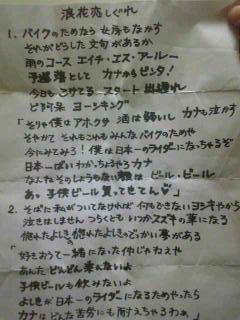 浪花恋しぐれ
1. バイクのためなら 女房もなかす
それがどうした 文句があるか
雨のコース エイチ・エス・アールー
予選落として カナからビンタ！
今日もこけてる スタート出遅れ
ど阿呆 ヨーシキング
「そりゃ僕はアホクサ 酒は弱いし カナも泣かす
せやかて それもこれも みんなバイクのためや
今にみてみろ！僕は日本一のライダーになったるぞ
日本一や わかっちょろ カナ
なんや そのしょうもない ビール・ビール
あっ 子供ビール 買ってきてん
2. そばに私がついてなければ 何もできない ヨシキやから
泣きはしません つらくとも いつかスズキの華になる
惚れたよしき 惚れたよしきの でっかい夢がある
「好きおうて一緒になった仲じゃねえか
あんた どんどん 乗んないよ
子供ビールも飲みないよ
よしきが日本一のライダーになるためやったら
カナはどんな苦労にも耐えちゃるわぁ」